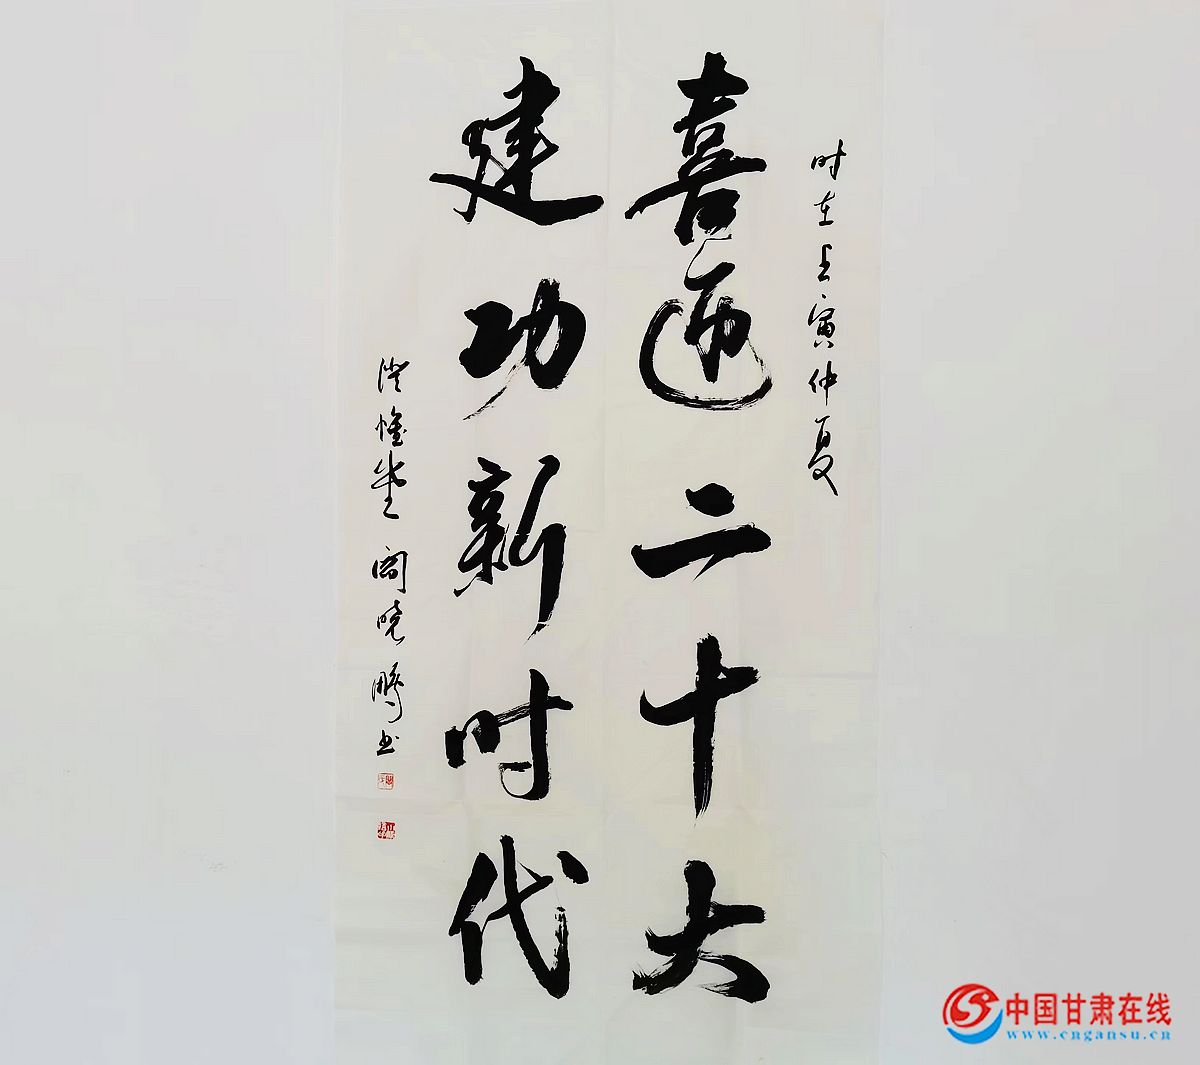 时在壬寅仲夏
喜迎二十大
建功新时代
堂 阎晓鹏书
中国甘肃在线
www.cngansu.cn